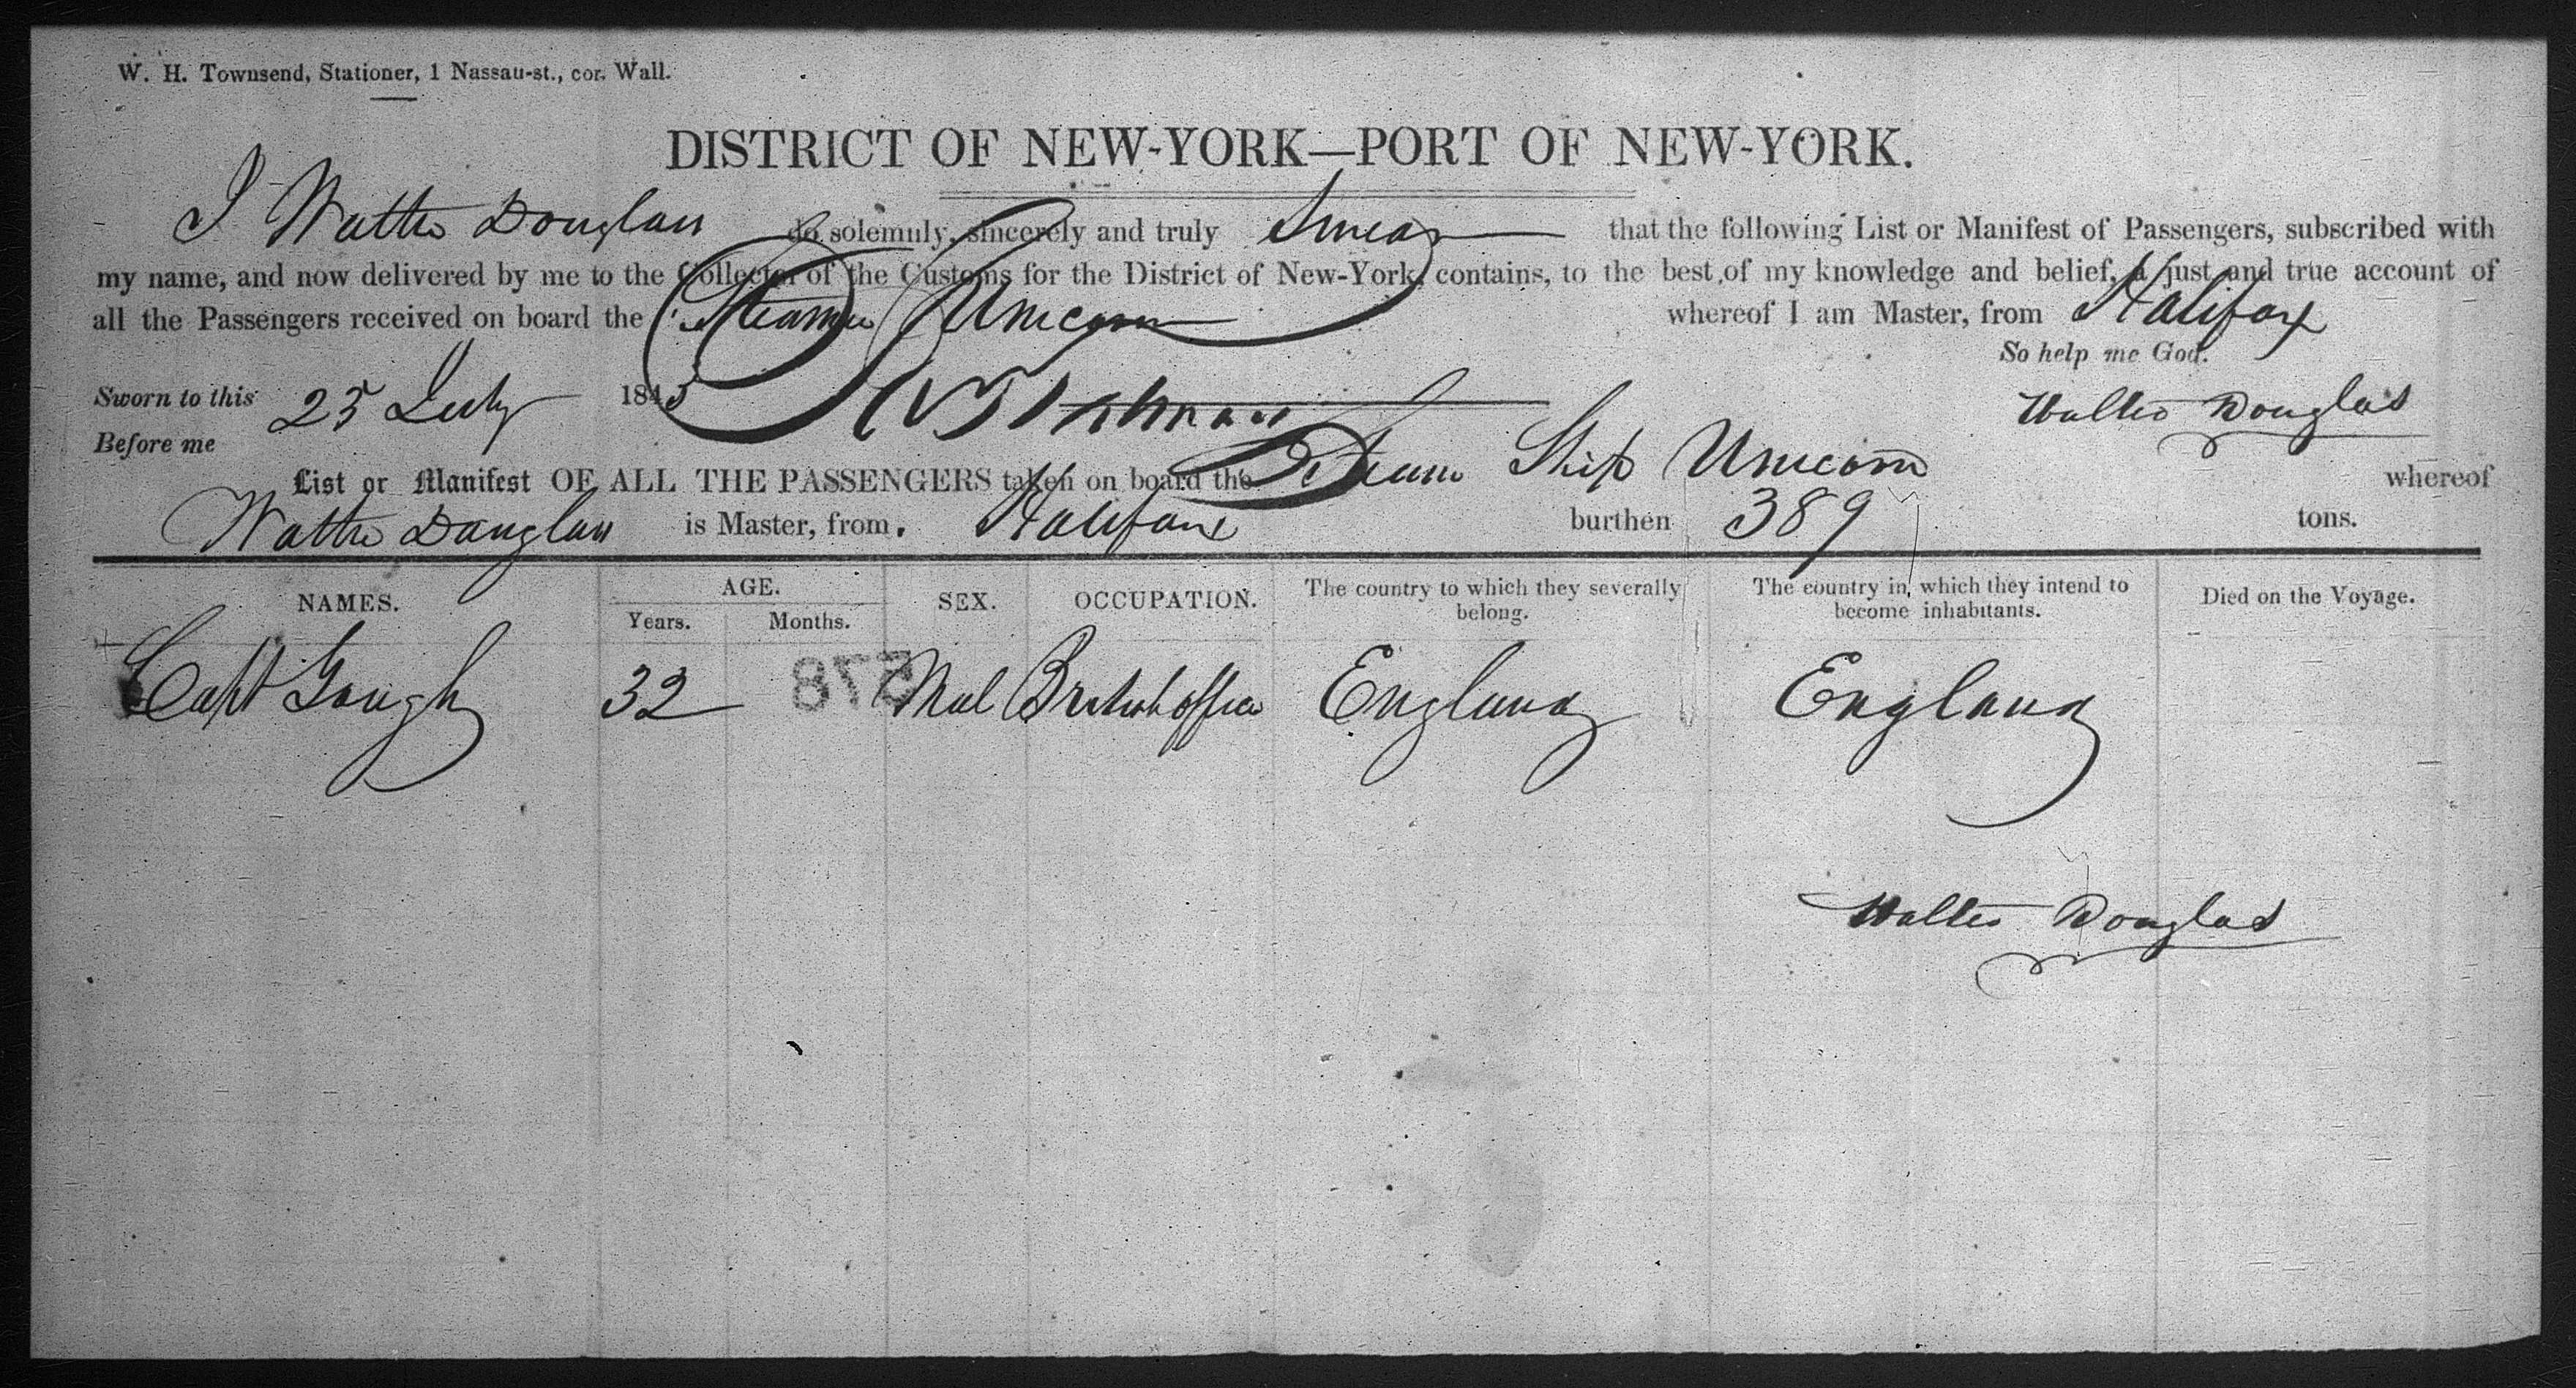 W. H. Townsend, Stationer, 1 Nassau-st., cor. Wall.
DISTRICT OF NEW-YORK—PORT OF NEW-YORK.
I Walter Douglas do solemnly, sincerely and truly Swear that the following List or Manifest of Passengers, subscribed with
my name, and now delivered by me to the Collector of the Customs for the District of New-York, contains, to the best of my knowledge and belief, a just and true account of
all the Passengers received on board the Steamer Unicorn whereof I am Master, from Halifax
So help me God.
Sworn to this 25 July 1845
Walter Douglas
Before me
List or Manifest OF ALL THE PASSENGERS taken on board the Steam Ship Unicorn whereof
Walter Douglas is Master, from Halifax burthen 389 tons.
NAMES. AGE. SEX. OCCUPATION. The country to which they severally belong. The country in which they intend to become inhabitants. Died on the Voyage.
Years. Months.
Capt Gough 32 Mal British officer England England
578
Walter Douglas